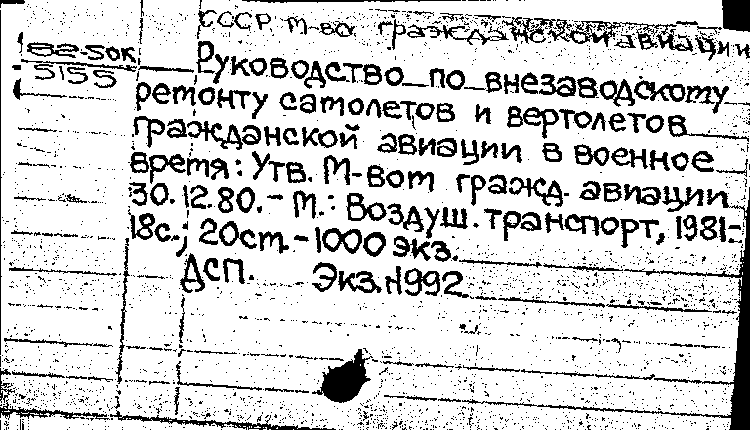 СССР М-во гражданской авиации
82-50к
5155
Руководство по внезаводскому
ремонту самолетов и вертолетов
гражданской авиации в военное
время: Утв. М-вом гражд. авиации
30.12.80.- М.: Воздуш. транспорт, 1981.-
18с.; 20см.-1000 экз.
ДСП. Экз.№1992